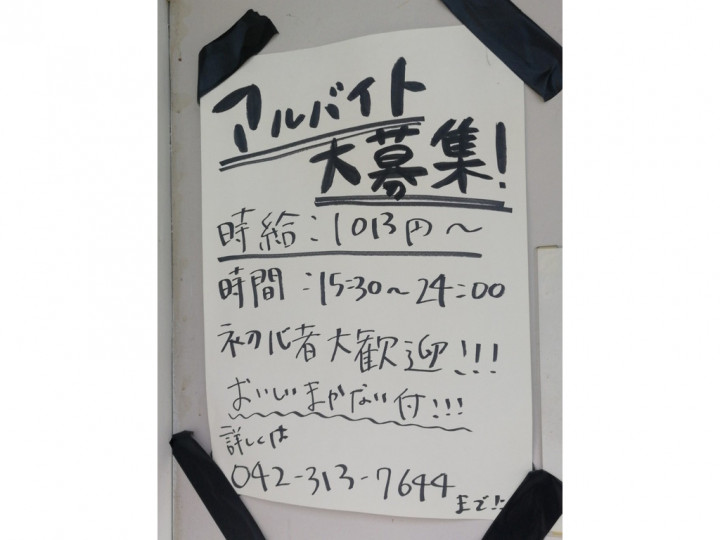 アルバイト
大募集!
時給:1013円～
時間:15:30～24:00
初心者大歓迎!!!
おいしいまかない付!!!
詳しくは
042-313-7644
まで!!